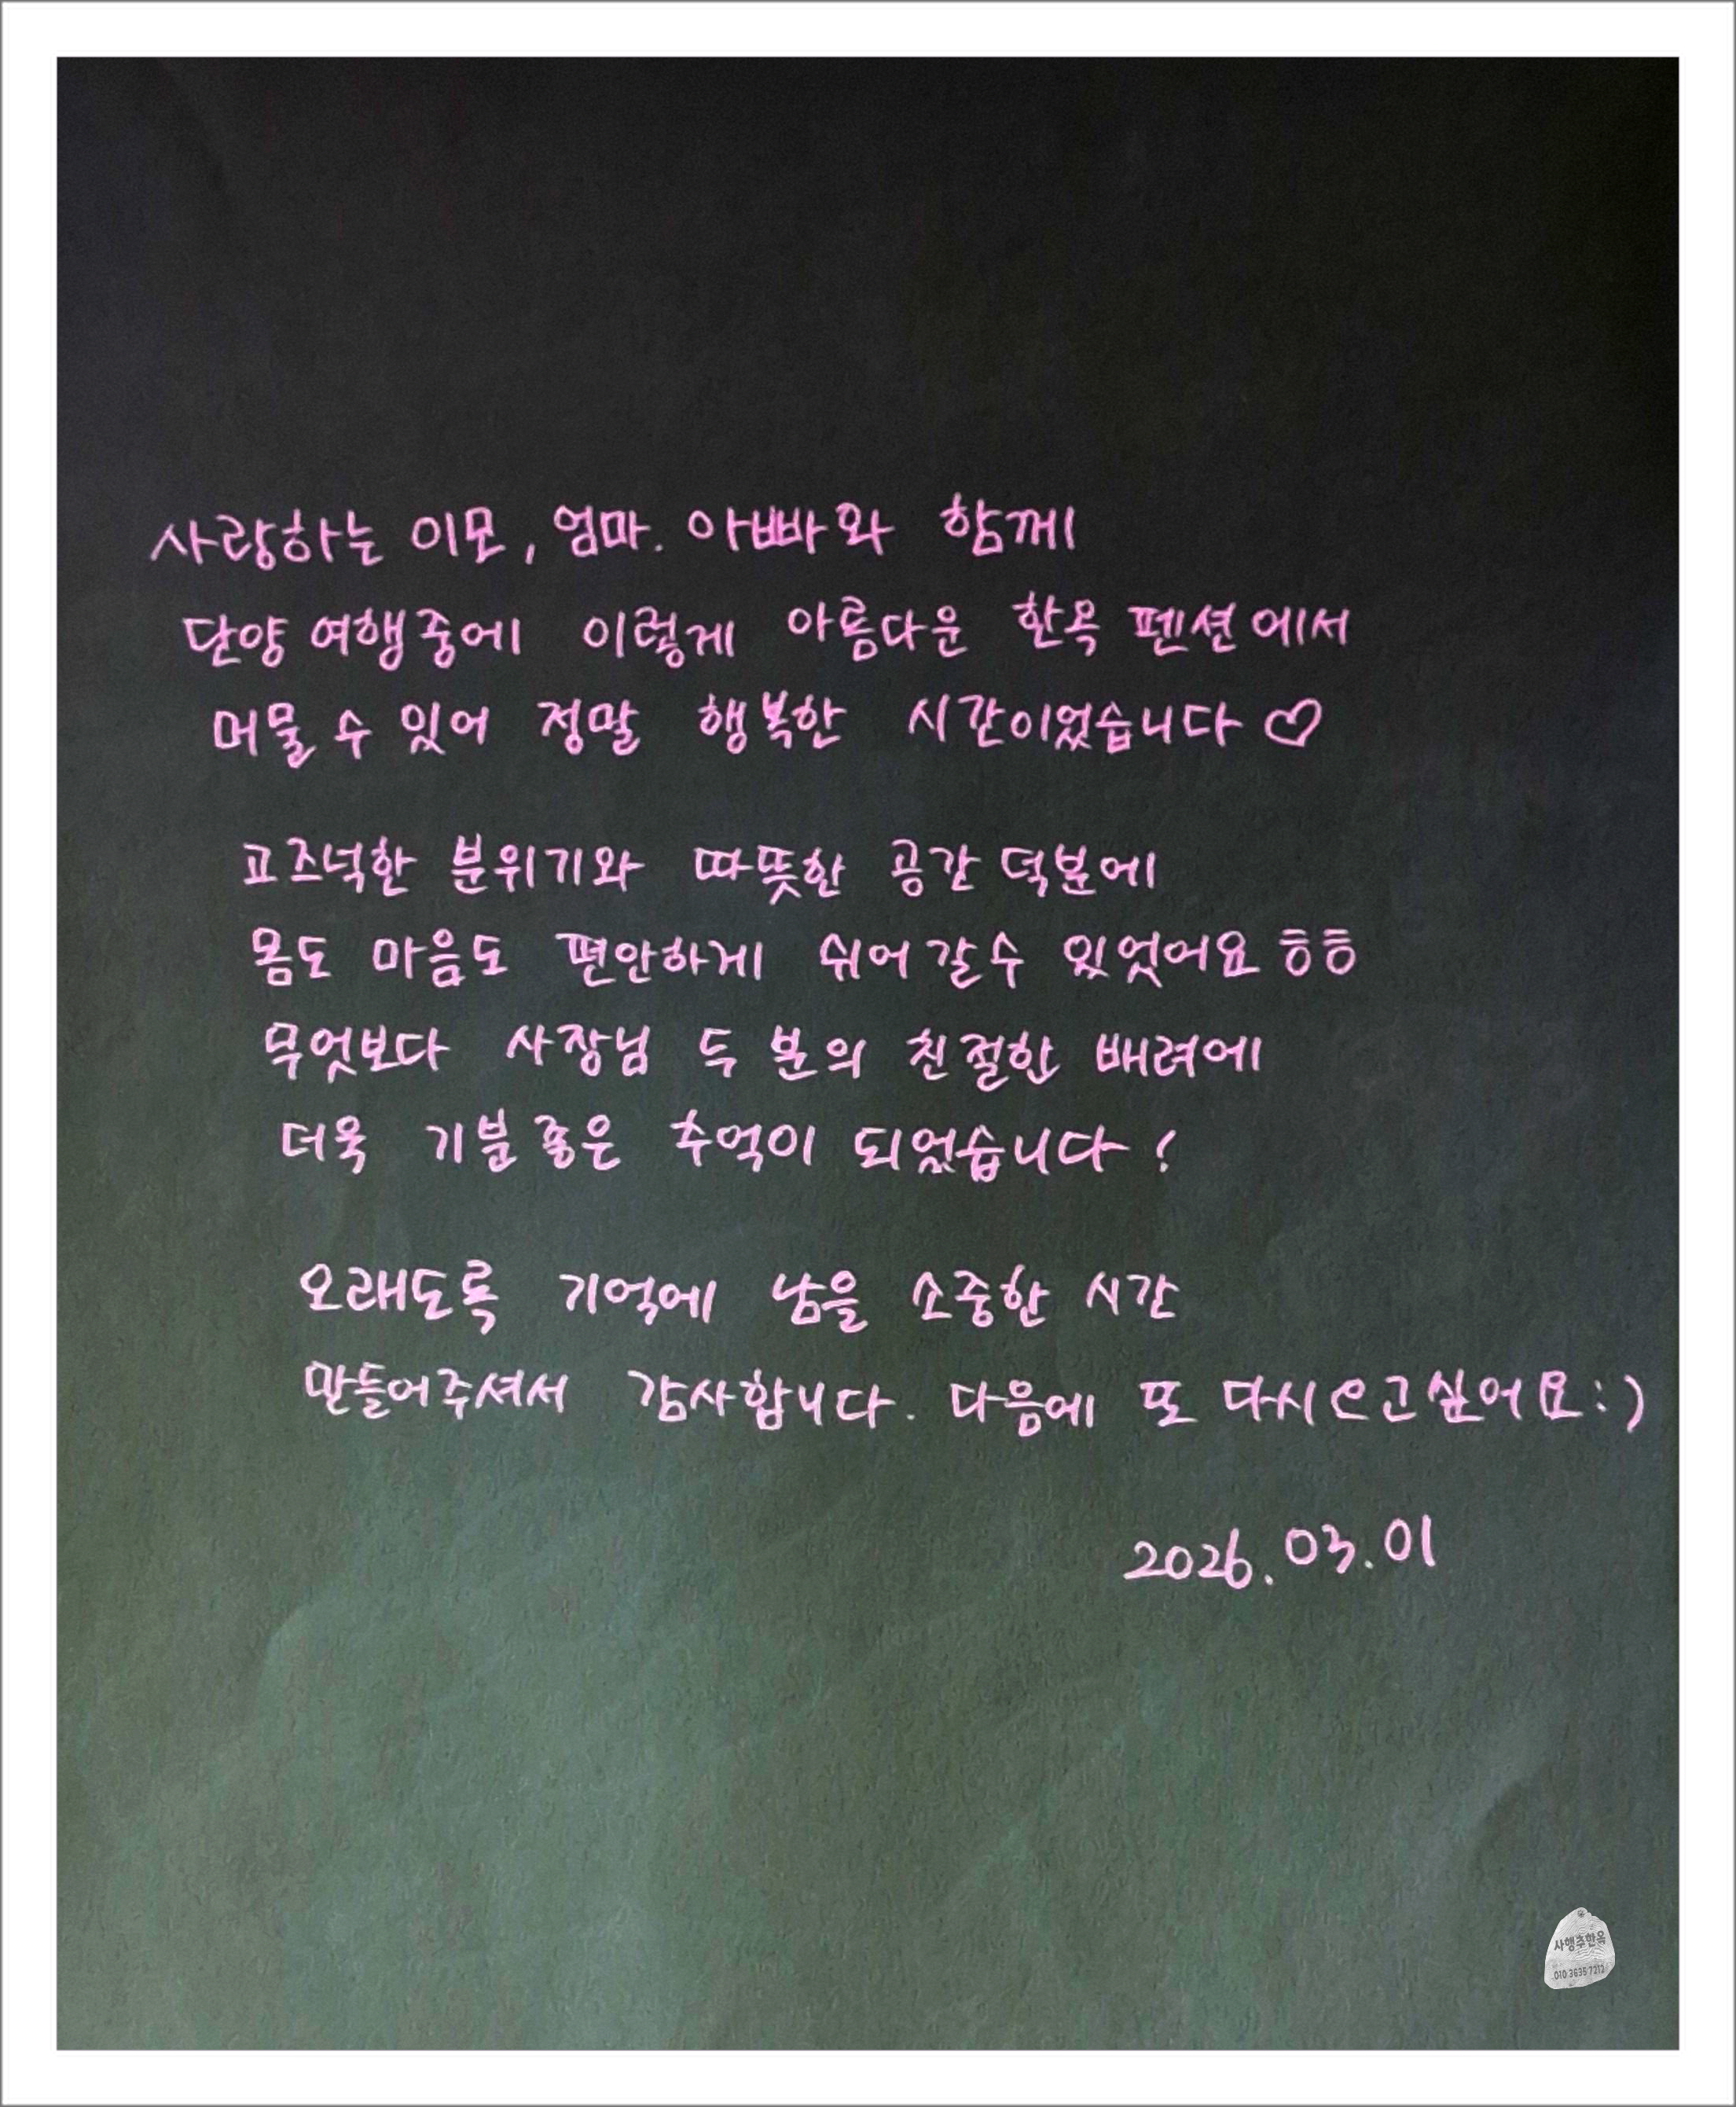 사랑하는 이모, 엄마. 아빠와 함께
단양 여행중에 이렇게 아름다운 한옥 펜션에서
머물 수 있어 정말 행복한 시간이었습니다♡
고즈넉한 분위기와 따뜻한 공간 덕분에
몸도 마음도 편안하게 쉬어갈수 있었어요ㅎㅎ
무엇보다 사장님 두 분의 친절한 배려에
더욱 기분 좋은 추억이 되었습니다!
오래도록 기억에 남을 소중한 시간
만들어주셔서 감사합니다. 다음에 또 다시 오고싶어요:)
2026.03.01
사행추한옥
010 3635 7212